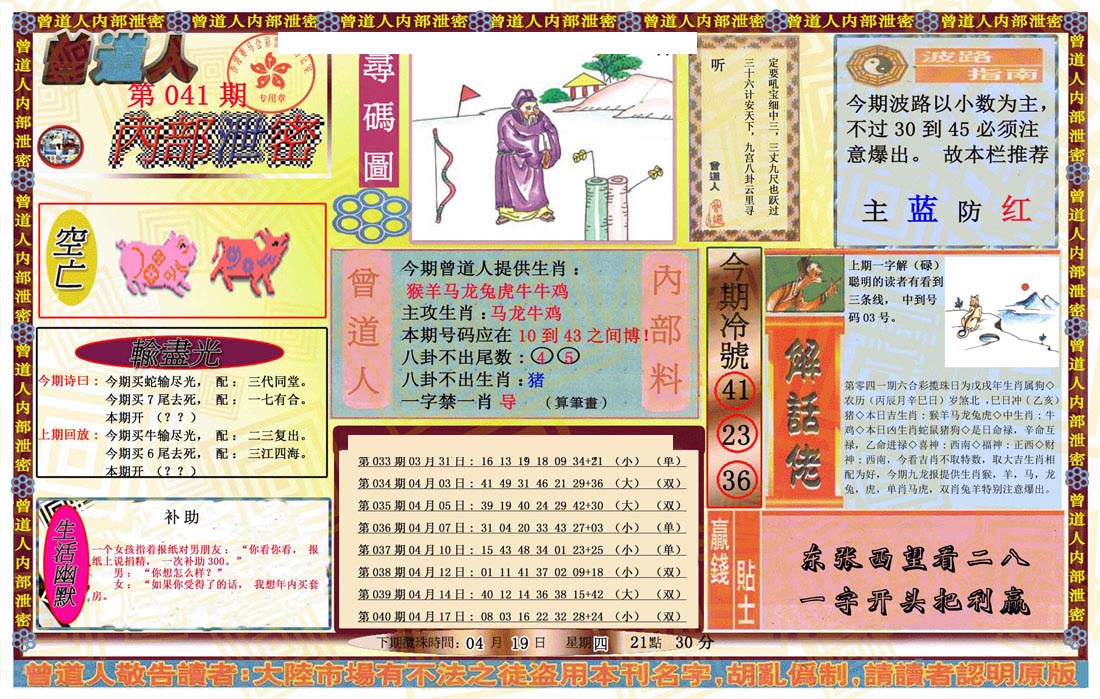 曾道人内部泄密 曾道人内部泄密 曾道人内部泄密 曾道人内部泄密 曾道人内部泄密 曾道人内部泄密 曾道人内部泄密
曾道人
第 041 期
内部泄密
专用章
尋碼圖
听
定要吼宝细中三，三丈九尺也跃过
三十六计安天下，九宫八卦云里寻
曾道人
波路指南
今期波路以小数为主，
不过 30 到 45 必须注
意爆出。 故本栏推荐
主 蓝 防 红
空亡
輸盡光
今期诗曰：今期买蛇输尽光， 配： 三代同堂。
今期买 7 尾去死， 配： 一七有合。
本期开 （？？）
上期回放：今期买牛输尽光， 配： 二三复出。
今期买 6 尾去死， 配： 三江四海。
本期开 （？？）
曾道人
内部料
今期曾道人提供生肖：
猴羊马龙兔虎牛牛鸡
主攻生肖：马龙牛鸡
本期号码应在 10 到 43 之间博！
八卦不出尾数：④ ⑤
八卦不出生肖：猪
一字禁一肖 导 （算筆畫）
今期冷號
41
23
36
上期一字解（碌）
聪明的读者有看到
三条线， 中到号
码 03 号。
解話佬
第零四一期六合彩搅珠日为戊戌年生肖属狗◇
农历（丙辰月辛巳日）岁煞北 ,巳日冲（乙亥）
猪◇本日吉生肖：猴羊马龙兔虎◇中生肖：牛
鸡◇本日凶生肖蛇鼠猪狗◇是日命禄，辛命互
禄，乙命进禄◇喜神：西南◇福神：正西◇财
神：西南，今看吉肖不取特数，取大吉生肖相
配为好，今期九龙报提供生肖猴，羊，马，龙
兔，虎，单肖马虎，双肖兔羊特别注意爆出。
第 033 期 03 月 31 日：16 13 19 18 09 34+21 （小）（单）
第 034 期 04 月 03 日：41 49 31 46 21 29+36 （大）（双）
第 035 期 04 月 05 日：39 19 40 24 29 42+30 （大）（双）
第 036 期 04 月 07 日：31 04 20 33 43 27+03 （小）（单）
第 037 期 04 月 10 日：15 43 48 34 01 23+25 （小）（单）
第 038 期 04 月 12 日：01 11 41 37 02 09+18 （小）（双）
第 039 期 04 月 14 日：40 12 14 36 38 15+42 （大）（双）
第 040 期 04 月 17 日：08 03 16 22 32 28+24 （小）（双）
下期攪珠時間：04 月 19 日 星期四 21點 30 分
生活幽默
补 助
一个女孩指着报纸对男朋友：“你看你看， 报
纸上说捐精， 一次补助 300。”
男：“你想怎么样？”
女：“如果你受得了的话， 我想年内买套
房。
贏錢貼士
东张西望看二八
一字开头把利赢
曾道人敬告讀者：大陸市場有不法之徒盗用本刊名字，胡亂僞制，請讀者認明原版